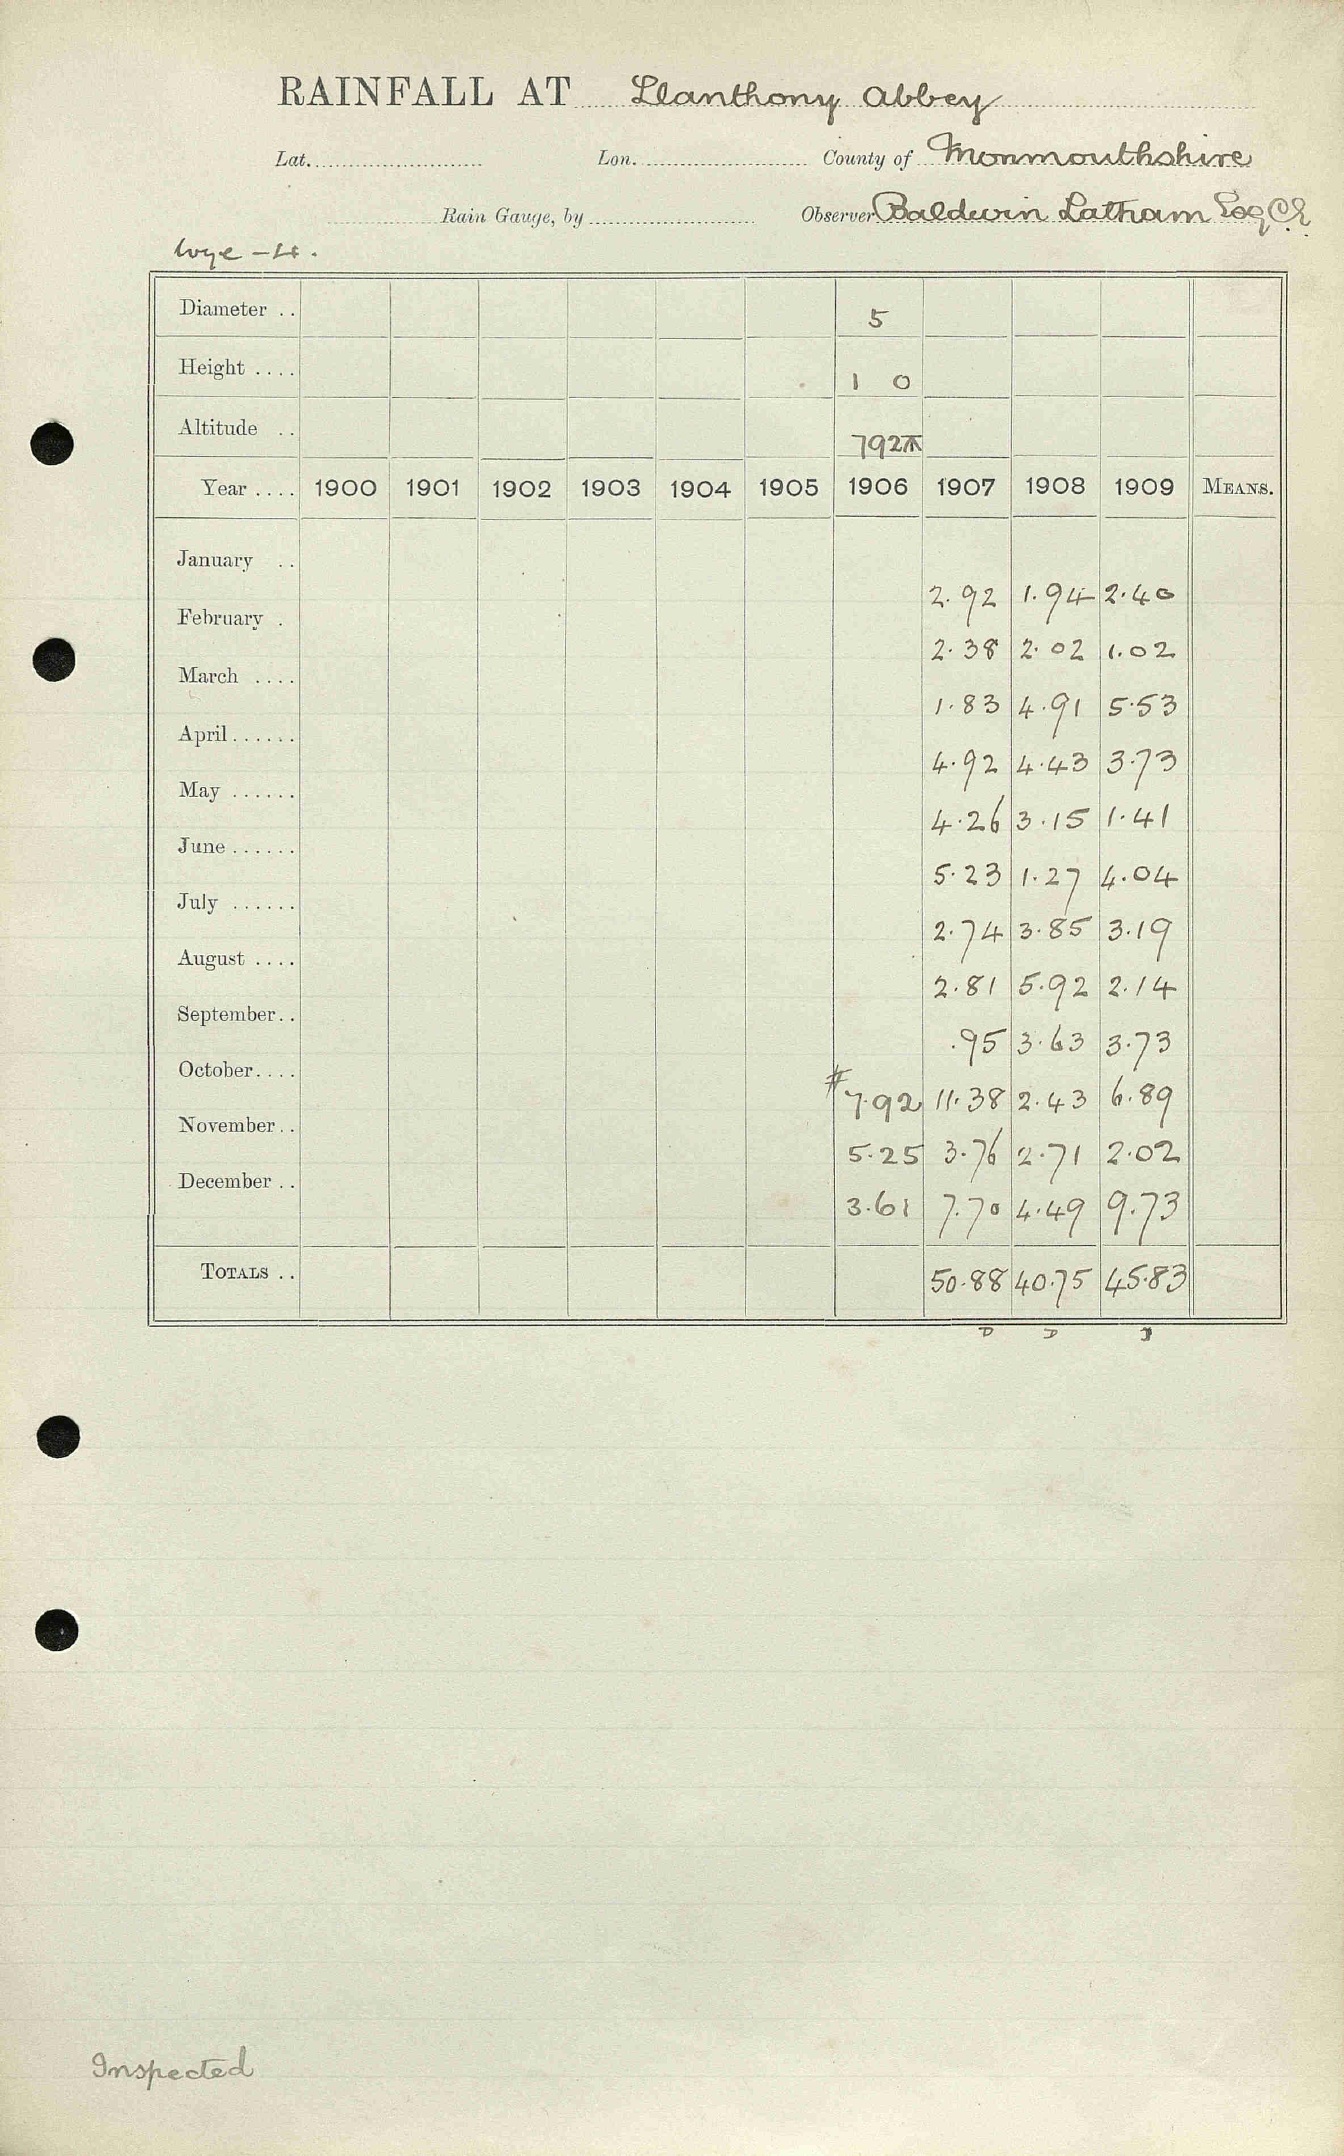 RAINFALL AT Llanthony Abbey
Lat. Lon. County of Monmouthshire
Rain Gauge, by Observer Baldwin Latham Esq C.E.
Wye - 4.
Diameter .. 5
Height .... 1 0
Altitude .. 792
Year .... 1900 1901 1902 1903 1904 1905 1906 1907 1908 1909 MEANS.
January .. 2.92 1.94 2.40
February . 2.38 2.02 1.02
March .... 1.83 4.91 5.53
April...... 4.92 4.43 3.73
May ...... 4.26 3.15 1.41
June ...... 5.23 1.27 4.04
July ...... 2.74 3.85 3.19
August .... 2.81 5.92 2.14
September.. .95 3.63 3.73
October.... # 7.92 11.38 2.43 6.89
November.. 5.25 3.76 2.71 2.02
December .. 3.61 7.70 4.49 9.73
TOTALS .. 50.88 40.75 45.83
D D
Inspected